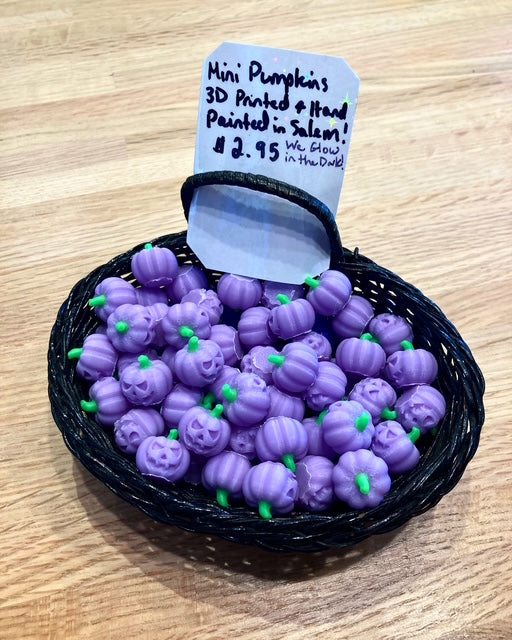 Mini Pumpkins
3D Printed + Hand
Painted in Salem!
$2.95 We Glow
in the Dark!